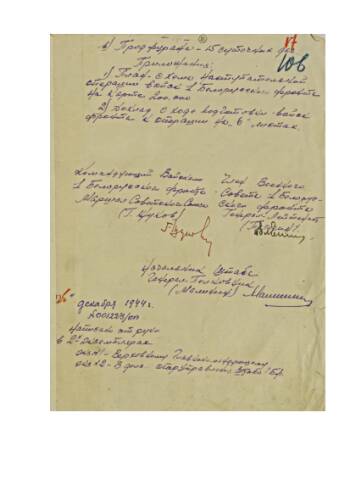 106
в) Продфуража - 15 суточных дач
Приложения:
1) План-схема наступательной
операции войск 1 Белорусского фронта
на карте 200.000
2) Доклад о ходе подготовки войск
фронта к операции на 6 листах.
Командующий Войсками
1 Белорусского фронта
Маршал Советского Союза
(Г. Жуков)
Член Военного
Совета 1 Белорус-
ского фронта
Генерал-Лейтенант
(Телегин)
Начальник Штаба
Генерал Полковник
(Малинин) Малинин
"26" декабря 1944 г.
написан от руки
в 2х экземплярах
экз №1 - Верховному Главнокомандующему
экз №2 - В дело оперуправления Штаба 1 БФ.